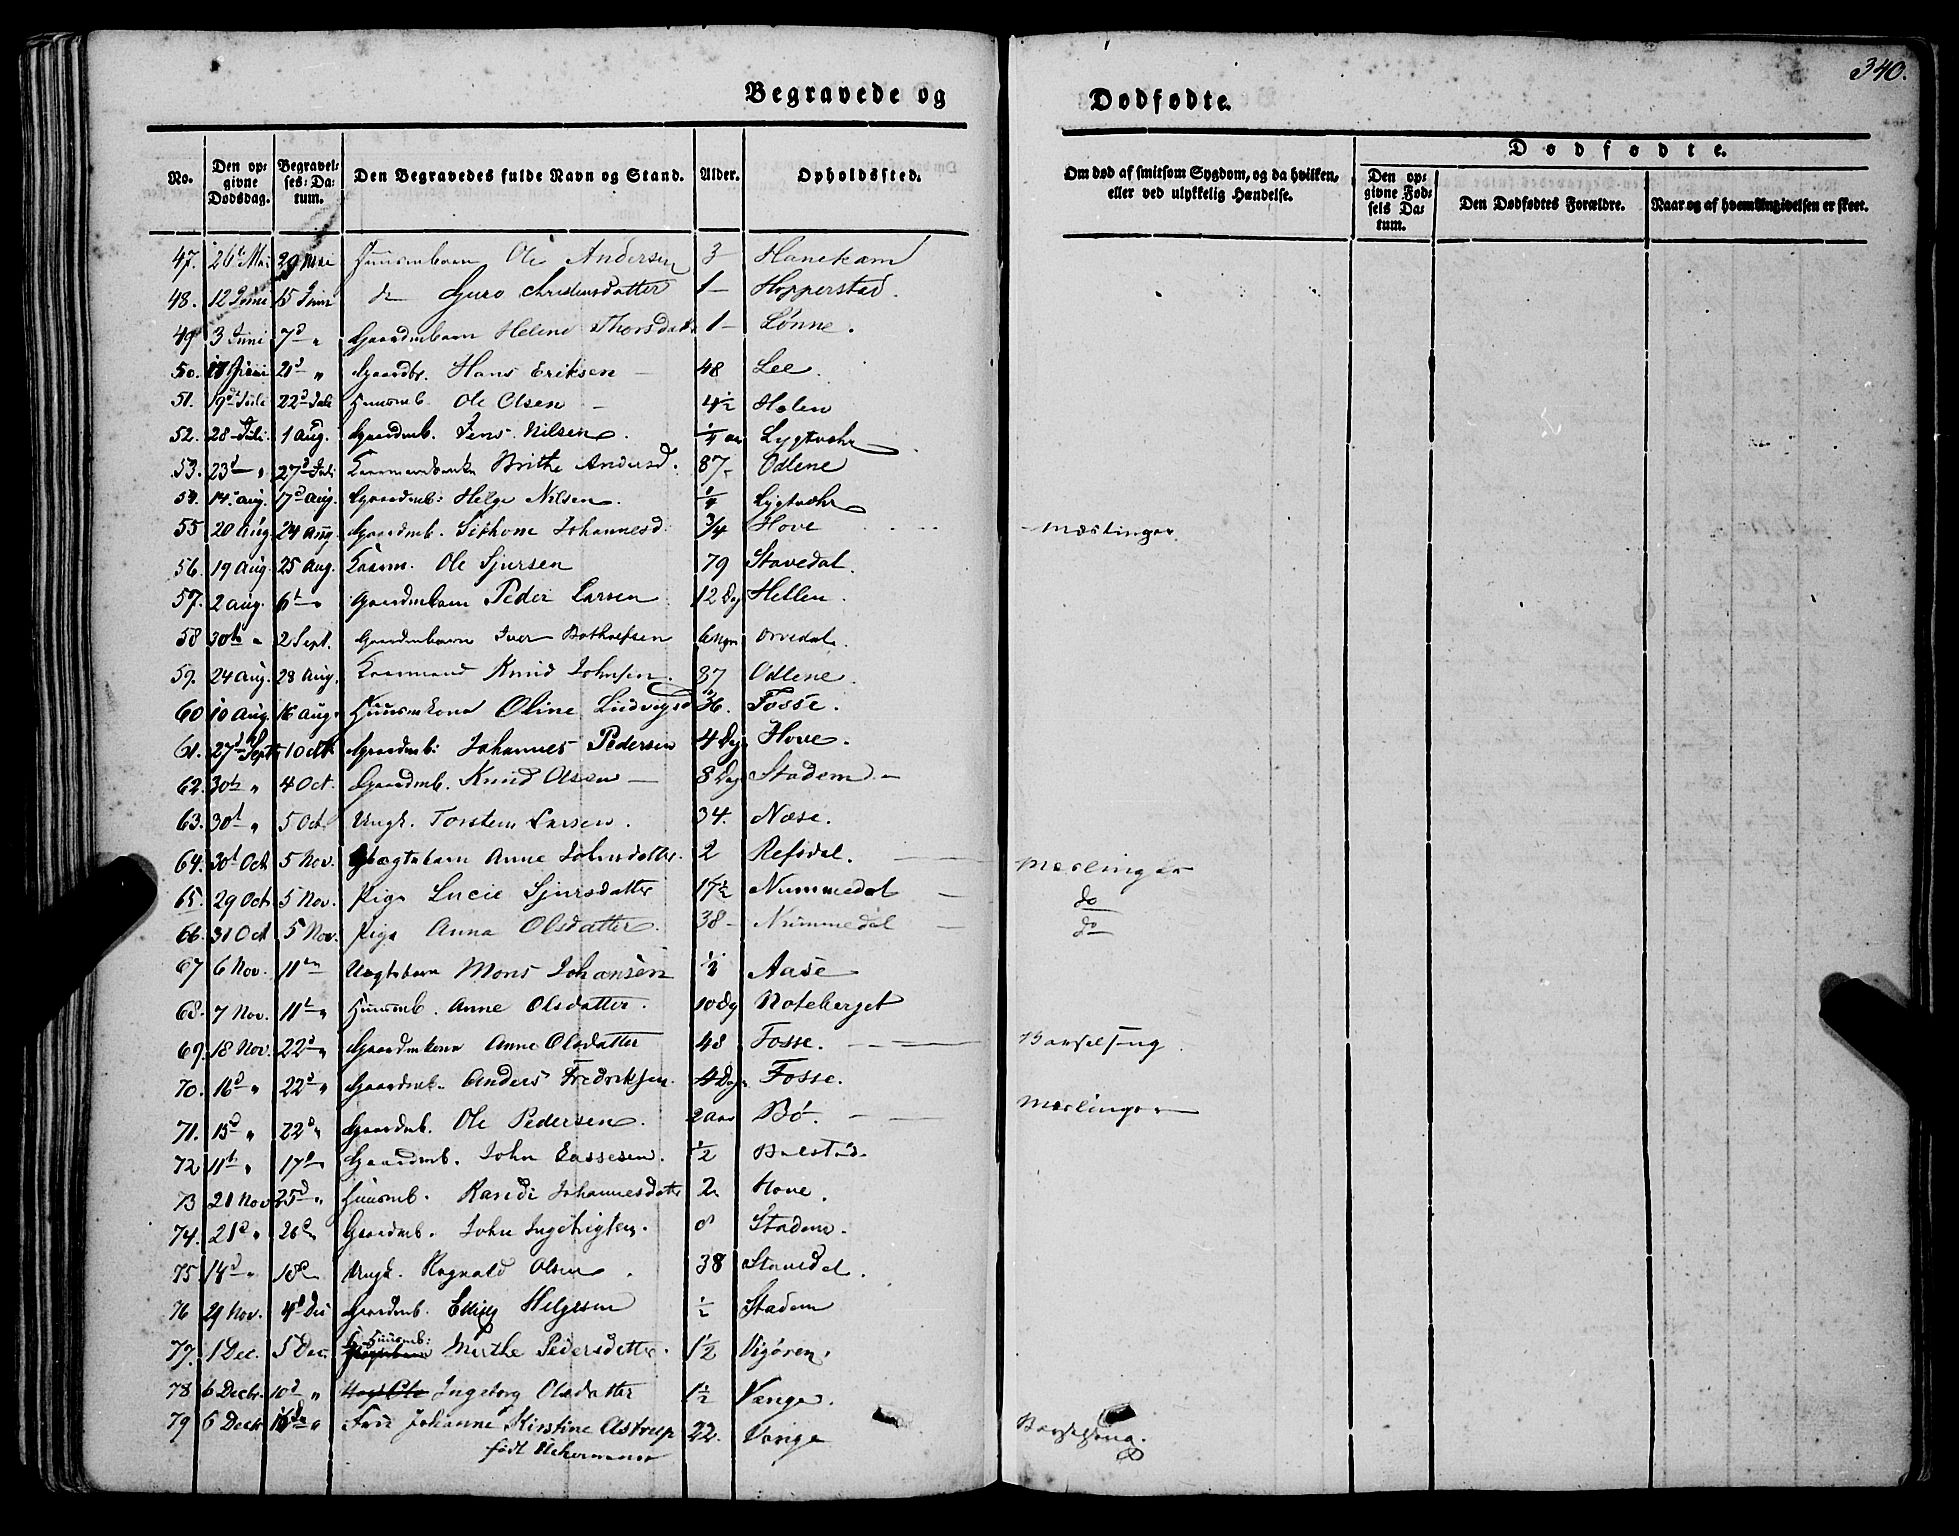 340.
Begravede og Dødfødte.
No. Den opgivne Dødsdag. Begravelses-Datum. Den Begravedes fulde Navn og Stand. Alder. Opholdssted. Om død af smitsom Sygdom, og da hvilken, eller ved ulykkelig Hændelse. Dødfødte. Den opgivne Fødsels Datum. Den Dødfødtes Forældre. Naar og af hvem Angivelsen er skeet.
47. 26 Mai 29 Mai Huusmbarn Ole Andersen 3 Hanekam
48. 12 Juni 15 Juni do Guro Christensdatter 1 Hopperstad.
49 3 Juni 7d " Gaardmbarn Helene Thorsdatt 1 Lønne.
50. 17 Juni 21d " Gaardbr. Hans Eriksen 48 Lee.
51. 19d Juli 22d Juli Huusmb. Ole Olsen 4½ Holen
52. 28 Juli. 1 Aug. Gaardmb. Jens Nilsen. ¼ aar Lygtvohr
53. 23d " 27d Juli Brithe Andersd. 87 Odlene
54. 14 aug. 17d Aug. Gaardmb: Helge Nilsen. ¼ Lygtvohr
55 20 Aug. 24 Aug. Gaardmb. Sithone Johannesd. 3/4 Hove Mæslinger.
56. 19 Aug. 25 Aug. Kaarm. Ole Sjursen 79 Stavedal.
57. 2 Aug. 6t " Gaardmbarn Peder Larsen 12 Dg Hellen.
58 30te " 2 Sept. Gaardmbarn Iver Bothvefsen 6 Orvedal.
59. 24 Aug. 28 Aug. Kaarmand Knud Johnsen. 87 Odlene.
60 10 Aug. 16 Aug. Huusmkone Oline Ludvigsd 36. Fosse.
61. 27d Sept 1 Oct. Gaardmb: Johannes Pedersen 4 Dg Hove.
62. 30te " 4 Oct. Gaardmb. Knud Olsen 8 Dg Stadem
63. 30t " 5 Oct Ungk. Torsten Larsen. 34. Næse.
64. 30t Oct 5 Nov. Lægtsbarn Anne Johnsdatter. 2 Refsdal. Mæslinger
65. 29 Oct. 5 Nov. Pige Lucie Sjursdatter 17½ Nummedal do
66. 31 Oct 5 Nov. Pige Anna Olsdatter. 38 Nummedal do
67 6 Nov. 11te Uægtebarn Mons Johansen ½ Aase
68. 7 Nov. 11t " Huusmb. Anne Olsdatter. 10 Dg Noteberget
69. 18 Nov. 22d " Gaardmkone Anne Olsdatter 48 Fosse. Barselseng.
70. 16d " 22d " Gaardmb. Anders Fredriksen. 4 Dg. Fosse.
71. 15d " 22d " Gaardmb. Ole Pedersen. 2 aar Bø. Mæslinger
72 11te " 17d " Gaardmb. John Lassesen. ½
73 21 Nov 25d " Huusmb. Randi Johannesdatt 2 Hove.
74. 21d " 26d Gaardmb. John Ingebrigtsen. 8 Stadem.
75 14d " 18d Ungk. Rognald Olsen. 38 Stavedal.
76 29 Nov. 4d Dec Gaardmb. Elling Helgesen ½ Stadem
77. 1 Dec. 5 Dec. Huusmb: Marthe Pedersdatter. 1½ Vigøren.
78 6 Decbr. 10d " Ingeborg Olsdatter 1½ Vange.
79 6 Decbr 16de " Fru Johanne Kirstine Astrup 22. Vange Barselseng.
født Uckermann